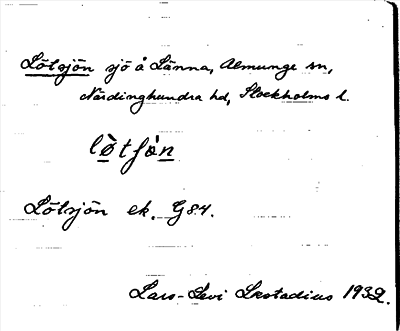 Lötsjön sjö å Länna, Almunge sn,
Närdinghundra hd, Stockholms l.
lø̀tʃø̀n
Lötsjön ek. G84.
Lars-Levi Læstadius 1932.